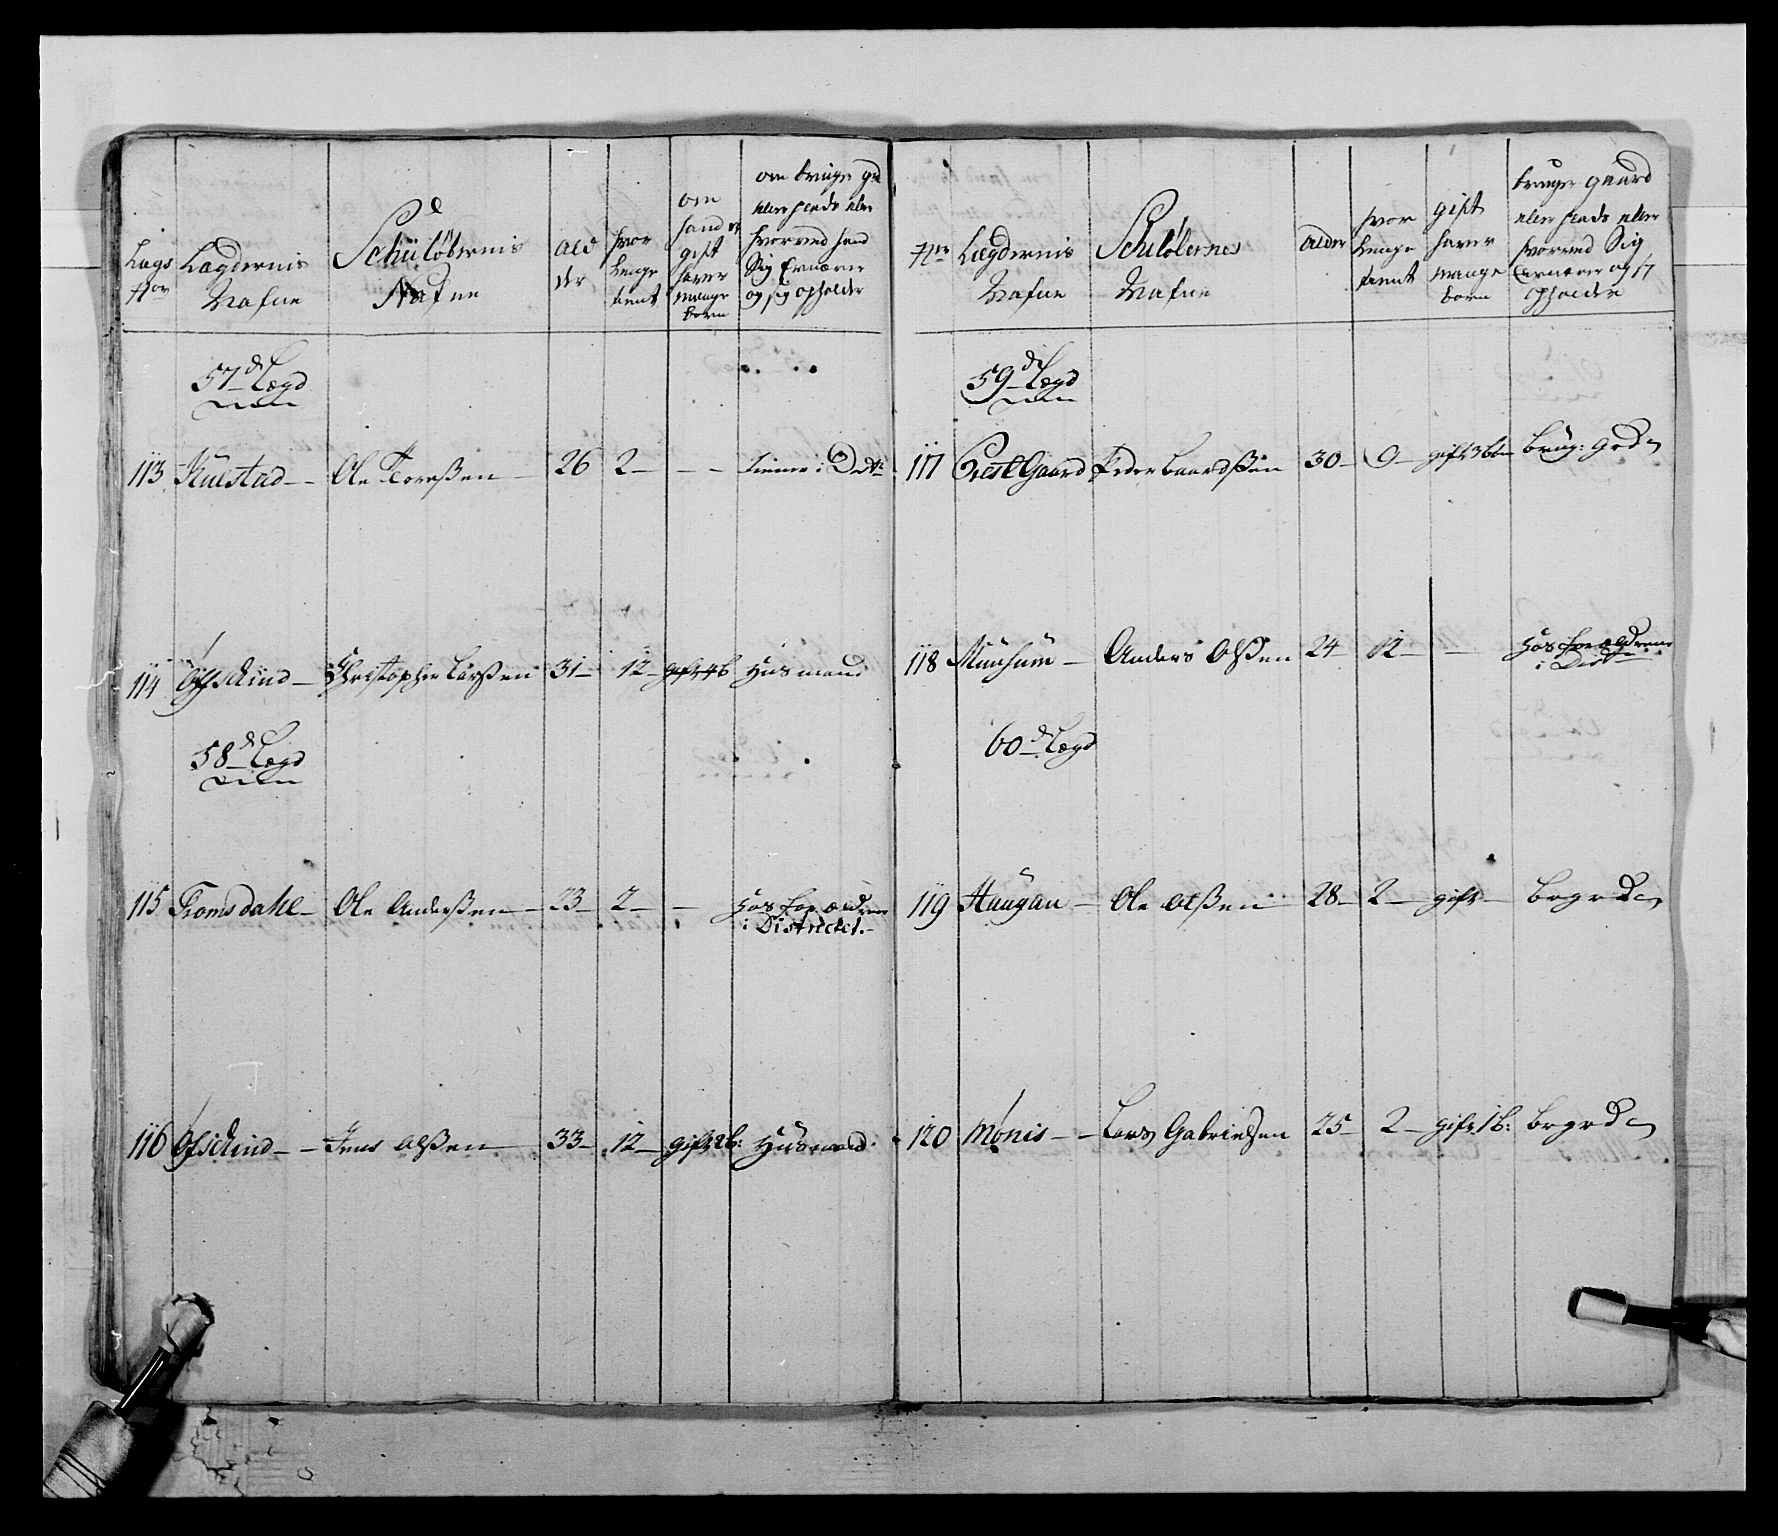 Lægs
No
Lægdernis
Nafne
Schiiløbernis
Nafne
Ald
der
hvor
lenge
tient
om
hand er
gift
haver
mange
børn
om bruger grd
eller plads eller
hvorved hand
Sig Ernærer
og sig opholder
57de Lægd
113 Kulstad Ole Toreßen 26 2 tiener i Dist:
114 Øfschind Christopher Larßen 31 12 gift 4b Husmand
58de Lægd
115 Tromsdahl Ole Anderßen 23 2 Hos Forældrene
i Districtet.
116 Øfschind Jens Olßen 33 12 gift 2b: Husmand
No
Lægdernis
Nafne
Schiløbernes
Nafne
Alder
hvor
lenge
tient
gift
haver
mange
børn
bruger gaard
eller plads eller
hvorved Sig
Ernærer og
opholder
59de Lægd
117 Prest Gaard Peder Baardßen 30 9 gift 3b brug: grd
118 Anders Olßen 24 12 Hos Forældrene
i Dist
60de Lægd
119 Haugan Ole Olßen 28 2 gift br grd
120 Mønis Lars Gabrielsen 25 2 gift 1b: br grd